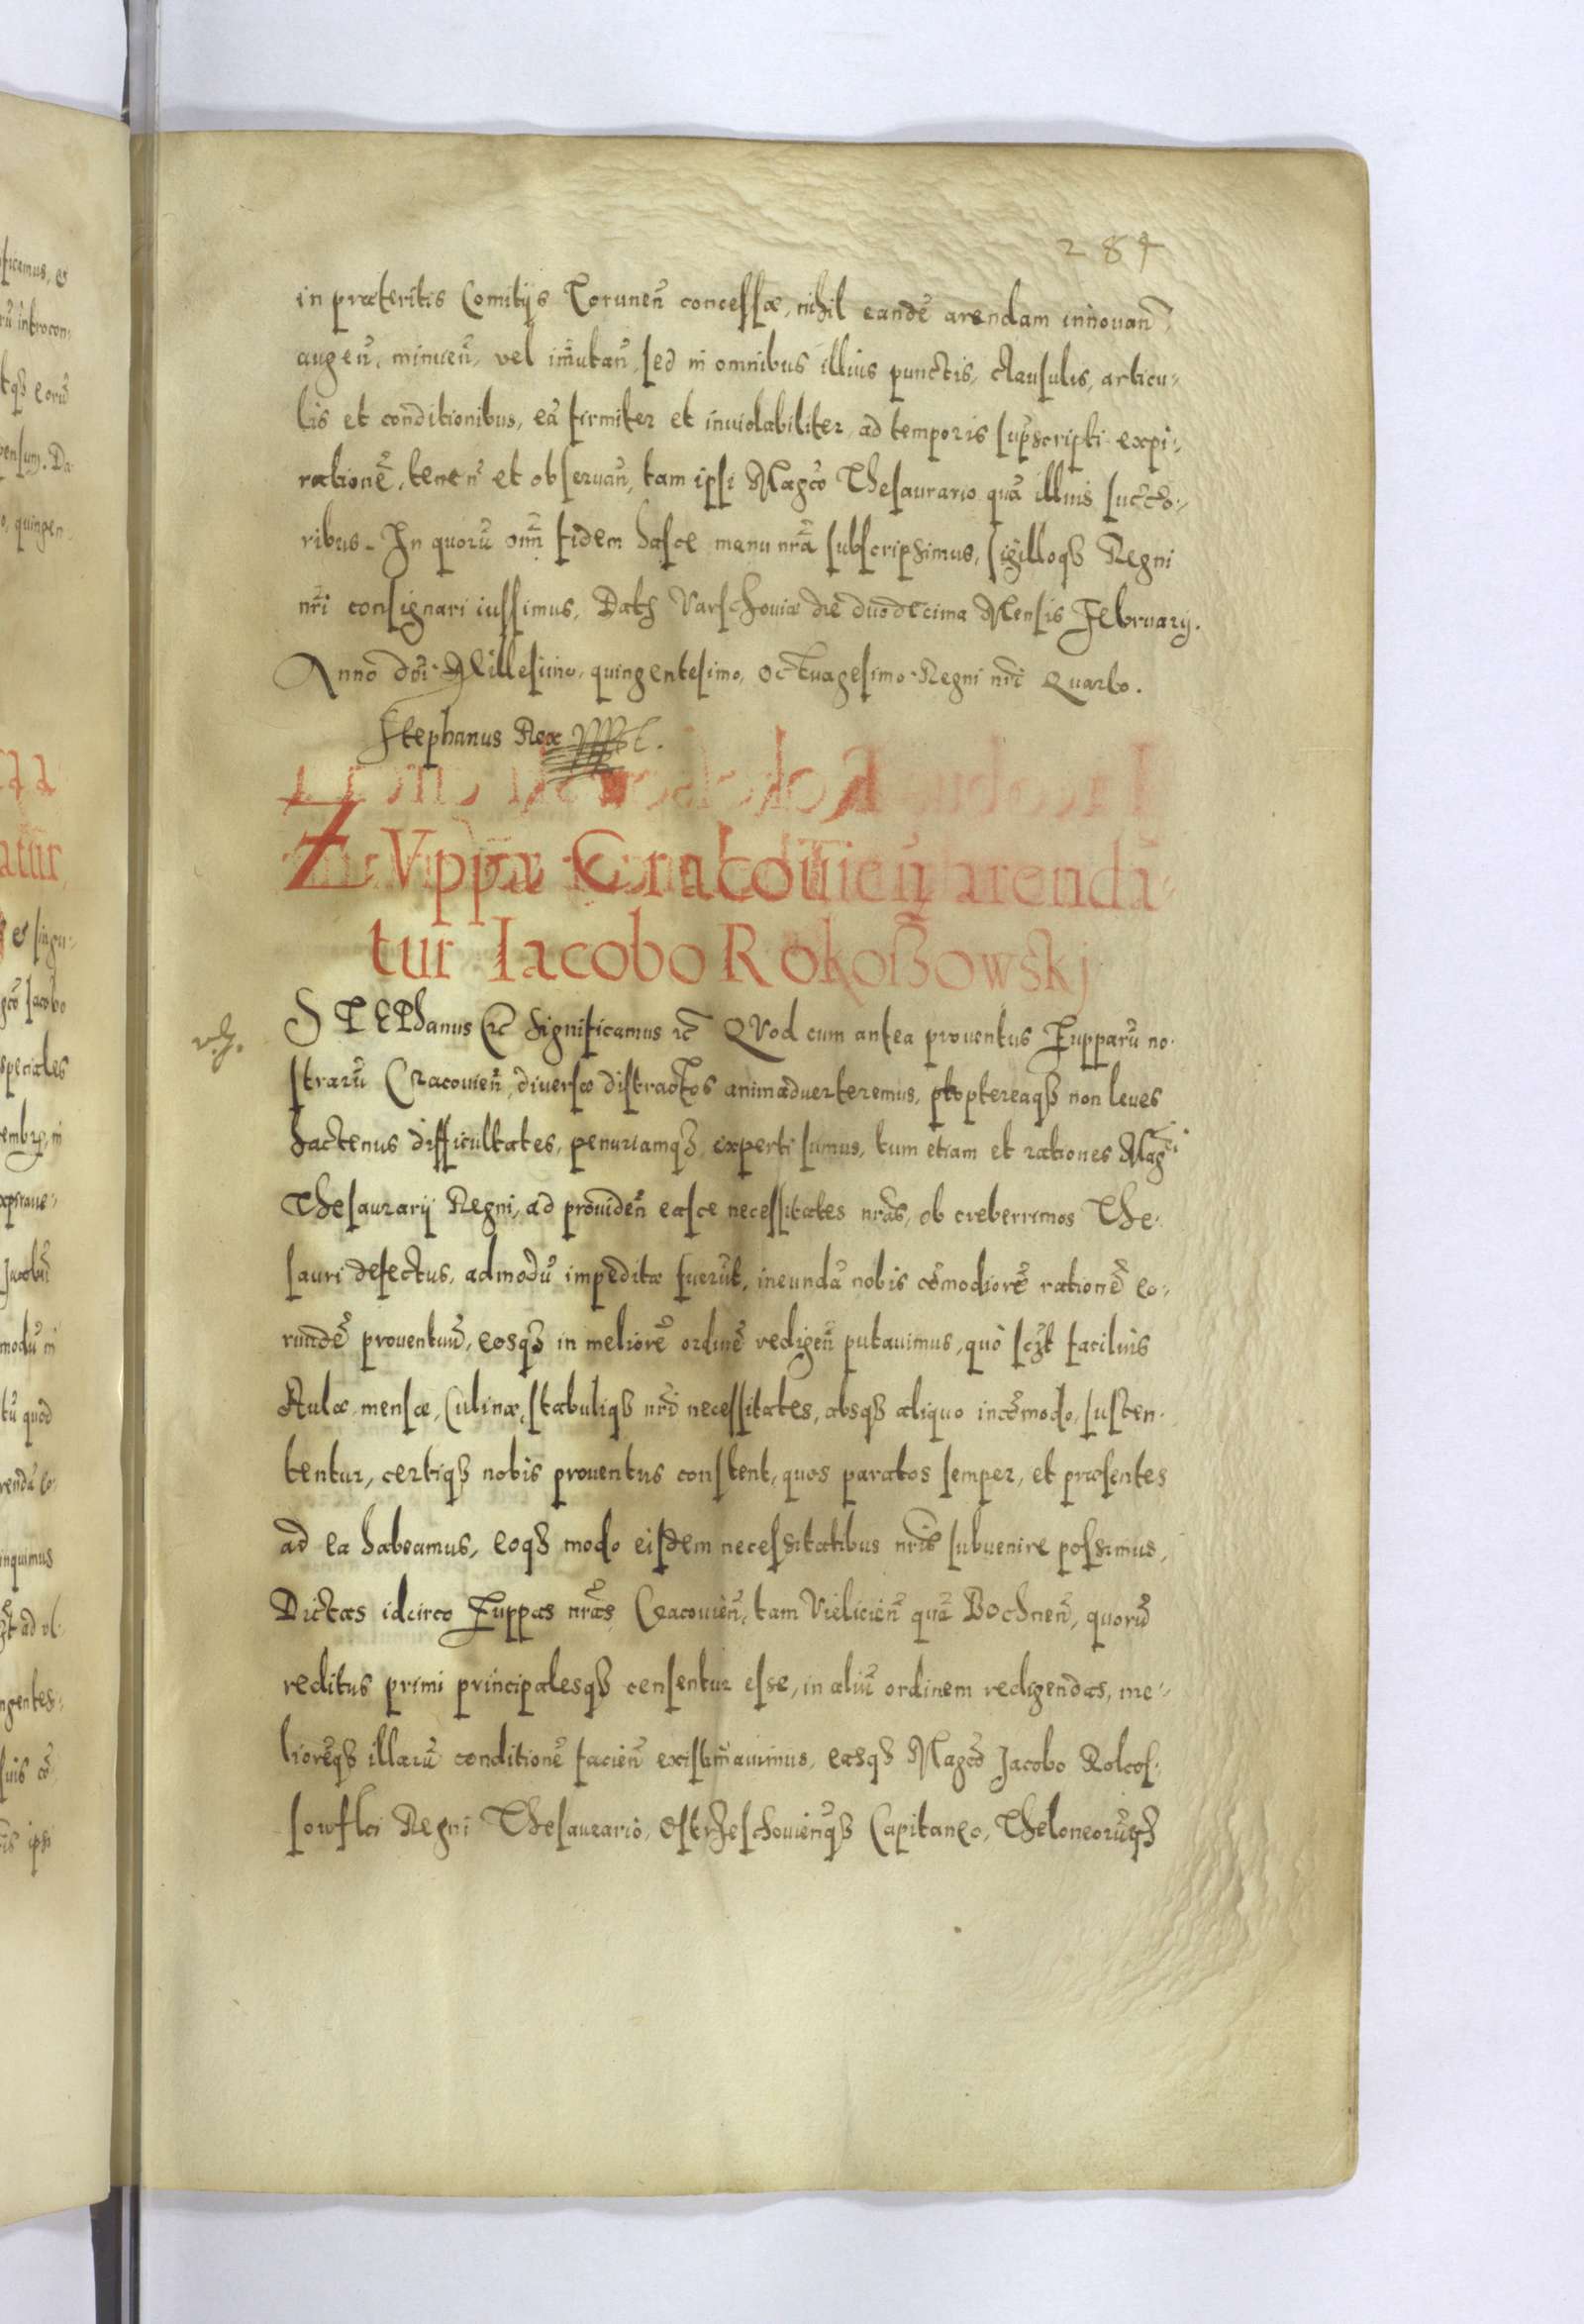 284
in præteritis Comitijs Torunen̄ concessæ, nihil eandē arendam innouan̄
augen̄, minuen̄, vel im̄utan̄, sed in omnibus illius punctis, clausulis, articu-
lis et conditionibus, eā firmiter et inuiolabiliter, ad temporis supscripti expi-
rationē, tenen̄ et obseruan̄, tam ipsi Magco Thesaurario quā illius succo-
ribus. In quorū om̄ fidem hasce manu nrā subscripsimus, sigilloqȝ Regni
nri consignari iussimus. Datȝ Varschouiæ die duodecima Mensis Februarij.
Anno dni Millesimo, quingentesimo, octuagesimo. Regni nri Quarto.
Stephanus Rex
ZVppæ Cracouien̄ arendā-
tur Iacobo Rokoßowskj
STEPhanus etc̄ Significamus etc̄ QVod cum antea prouentus Zupparū no-
strarū Cracouien̄, diuersæ distractos animaduerteremus, proptereaqȝ non leues
hactenus difficultates, penuriamqȝ experti sumus, tum etiam et rationes Magci
Thesaurarij Regni, ad prouiden̄ easce necessitates nrās, ob creberrimos The-
sauri defectus, admodū impeditæ fuerūt, ineundā nobis cōmodiorē rationē eo-
rundē prouentuū, eosqȝ in meliorē ordinē redigen̄ putauimus, quò sczt facilius
Aulæ, mensæ, Culinæ, stabuliqȝ nri necessitates, absqȝ aliquo incōmodo, susten-
tentur, certiqȝ nobis prouentus constent, quos paratos semper, et præsentes
ad ea habeamus, eoqȝ modo eisdem necessitatibus nris subuenire possimus,
Dictas idcirco Zuppas nrās Cracouien̄, tam Vielicien̄ quā Bochnen̄, quorū
reditus primi principalesqȝ censentur esse, in aliū ordinem redigendas, me-
liorēqȝ illarū conditionē facien̄ existimauimus, easqȝ Magco Jacobo Rokos-
sowski Regni Thesaurario, Ostrzeschouien̄qȝ Capitaneo, Theloneorūqȝ